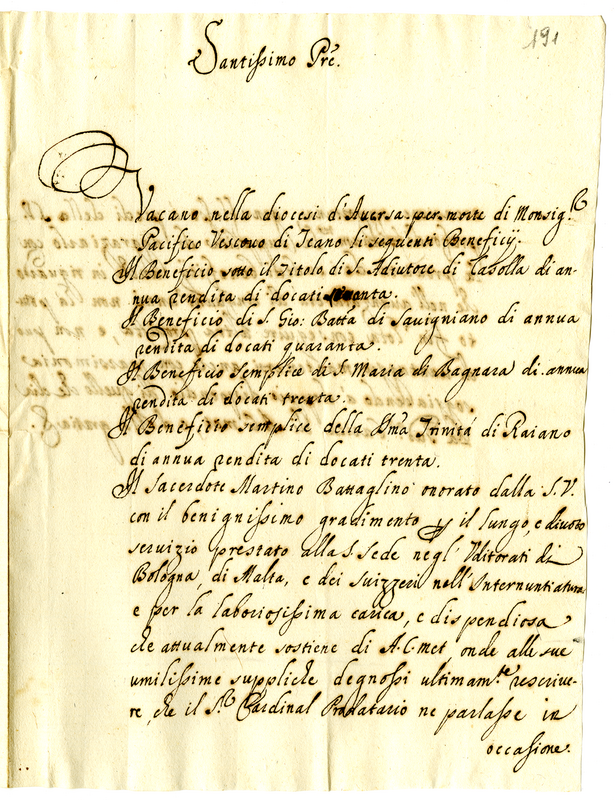 191
Santissimo Prē.
Vacano nella diocesi d'Aversa per morte di Monsig.r
Pacifico Vescovo di Teano li seguenti Beneficij.
Il Beneficio sotto il titolo di S. Adiutore di Casolla di an-
nua rendita di docati
Il Beneficio di S. Gio: Batta di Savigniano di annua
rendita di docati quaranta.
Il Beneficio semplice di S. Maria di Bagnara di annua
rendita di docati trenta.
Il Beneficio semplice della SSma Trinità di Raiano
di annua rendita di docati trenta.
Il Sacerdote Martino Battaglino onorato dalla S.V.
con il benignissimo gradimento il lungo, e divoto
servizio prestato alla S. Sede negl' Uditorati di
Bologna, di Malta, e dei Suizzeri nell'Internuntiatura
e per la laboriosissima carica, e dispendiosa
che attualmente sostiene di A.C. met. onde alle sue
umilissime suppliche degnossi ultimam.te rescrive-
re, che il S.r Cardinal Prodatario ne parlasse in
occasione.